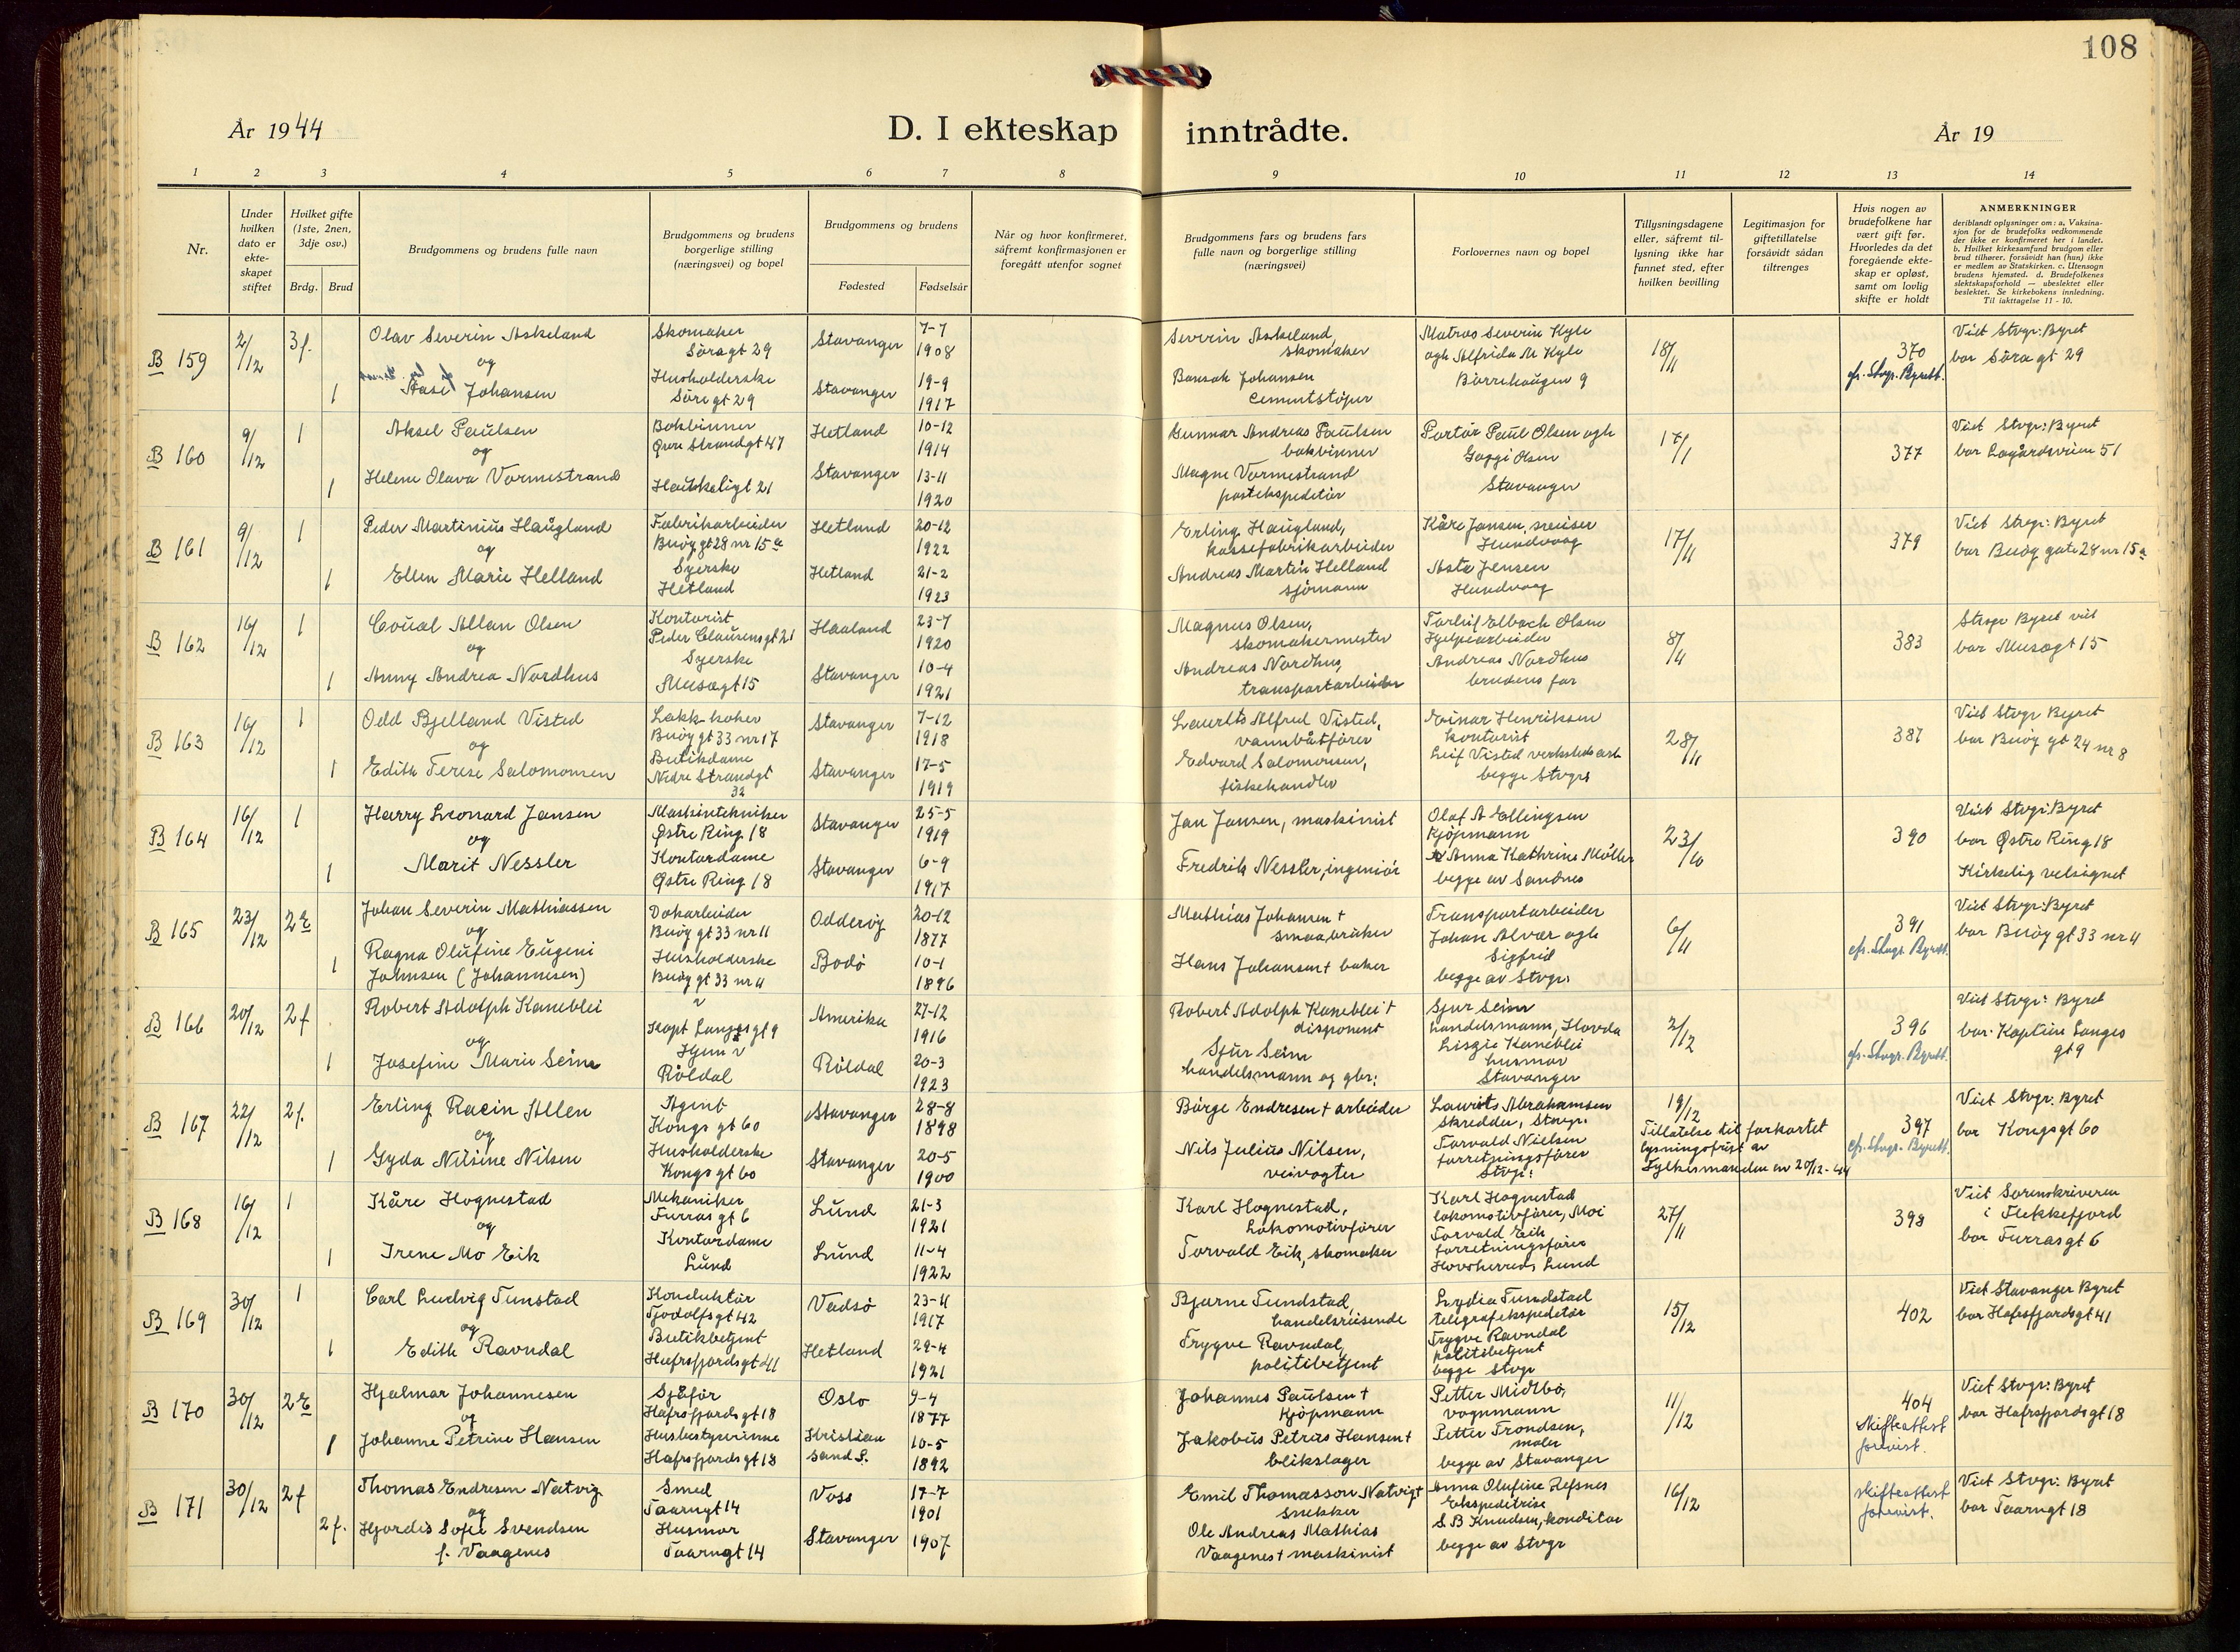 108
År 1944
D. I ekteskap inntrådte.
År 19
1 2 3 4 5 6 7 8 9 10 11 12 13 14
Nr.
Under hvilken dato er ekte-skapet stiftet
Hvilket gifte (1ste, 2nen, 3dje osv.)
Brdg. Brud
Brudgommens og brudens fulle navn
Brudgommens og brudens borgerlige stilling (næringsvei) og bopel
Brudgommens og brudens
Fødested Fødselsår
Når og hvor konfirmeret, såfremt konfirmasjonen er foregått utenfor sognet
Brudgommens fars og brudens fars fulle navn og borgerlige stilling (næringsvei)
Forlovernes navn og bopel
Tillysningsdagene eller, såfremt til-lysning ikke har funnet sted, efter hvilken bevilling
Legitimasjon for giftetillatelse forsåvidt sådan tiltrenges
Hvis nogen av brudefolkene har vært gift før. Hvorledes da det foregående ekte-skap er opløst, samt om lovlig skifte er holdt
ANMERKNINGER
deriblandt oplysninger om: a. Vaksina-sjon for de brudefolks vedkommende der ikke er konfirmeret her i landet. b. Hvilket kirkesamfund brudgom eller brud tilhører, forsåvidt han (hun) ikke er medlem av Statskirken. c. Utensogn brudens hjemsted. d. Brudefolkenes slektskapsforhold — ubeslektet eller beslektet. Se kirkebokens innledning. Til iakttagelse 11 - 10.
B 159 2/12 3 f. Olav Severin Askeland Skomaker Søragt 29 Stavanger 7-7 1908 Severin Askeland, skomaker Matros Severin Kyle 18/11 370 Viet Stvgr: Byret
og ogh Alfrida M Kyle cfr. Stvgr. Byrett. bor Søra gt 29
1 Aase Johansen Husholderske Søragt 29 Stavanger 19-9 1917 Johansen Cementstøper Børrehaugen 9
B 160 9/12 1 Aksel Paulsen Bokbinner Øvre Strandgt 47 Hetland 10-12 1914 Gunnar Andreas Paulsen bokbinner Portør Paul Olsen ogh 17/1 377 Viet Stvgr: Byret
og Olsen bor Lagårdsveien 51
1 Helene Olava Vormestrand Haukeligt 21 Stavanger 13-11 1920 Magne Vormestrand postekspeditør Stavanger
B 161 9/12 1 Peder Martinius Haugland Fabrikarbeider Buøy gt 28 nr 15 a Hetland 20-12 1922 Erling Haugland, kassefabrikarbeider Kåre Jansen, Hundvaag 17/11 379 Viet Stvgr: Byret
og bor Buøy gate 28 nr 15 a
1 Ellen Marie Helland Syerske Hetland Hetland 21-2 1923 Andreas Martin Helland sjømann Asta Jensen Hundvaag
B 162 16/12 1 Allan Olsen Kontorist Peder Clausensgt 21 Haaland 23-7 1920 Magnus Olsen, skomakermester Torleif Elbach Olsen Hjelpearbeider 8/4 383 Stvgr Byret viet
og bor Musegt 15
1 Anny Andrea Nordhus Syerske Musegt 15 Stavanger 10-4 1921 Andreas Nordhus, transportarbeider Andreas Nordhus brudens far
B 163 16/12 1 Odd Bjelland Visted Lakk-koker Buøy gt 33 nr 17 Stavanger 7-12 1918 Laurits Alfred Visted, vannbåtfører Einar Henriksen kontorist 28/11 387 Viet Stvgr Byret
og bor Buøy gt 24 nr 8
1 Edith Terese Salomonsen Butikdame Nedre Strandgt 32 Stavanger 17-5 1919 Edvard Salomonsen, fiskehandler Leif Visted verkstedsarb begge Stvgr
B 164 16/12 1 Harry Leonard Jansen Maskintekniker Østre Ring 18 Stavanger 25-5 1919 Jan Jansen, maskinist Olaf A Ellingsen Kjøpmann 23/10 390 Viet Stvgr: Byret
og bor Østre Ring 18
1 Marit Nessler Kontordame Østre Ring 18 Stavanger 6-9 1917 Fredrik Nessler, ingeniør Anna Kathrine Møller begge av Sandnes Kirkelig velsignet
B 165 23/12 2 E Johan Severin Mathiassen Dokarbeider Buøy gt 33 nr 11 Oddernes 20-12 1877 Mathias Johansen + smaabruker Transportarbeider Johan Alvar ogh 6/11 391 Viet Stvgr: Byret
og cfr. Stvgr. Byrett. bor Buøy gt 33 nr 11
1 Ragna Olufine Eugeni Johnsen (Johannesen) Husholderske Buøy gt 33 nr 11 Bodø 10-1 1896 Hans Johansen + baker Sigfrid begge av Stvgr:
B 166 20/12 2 f Robert Adolph Kaneblei Kapt Langes gt 9 Amerika 27-12 1916 Robert Adolph Kaneblei + disponent Sjur Seim handelsmann, Hovda 2/12 396 Viet Stvgr: Byret
og cfr. Stvgr. Byrett. bor: Kaptein Langes gt 9
1 Josefine Marie Seim Hjemv Røldal Røldal 20-3 1923 Sjur Seim handelsmann og gbr: Kaneblei husmor Stavanger
B 167 22/12 2 f. Erling Racin Allen Agent Kongs gt 60 Stavanger 28-8 1898 Børge Endresen + arbeider Laurits Abrahamsen skredder, Stvgr. 19/12 397 Viet Stvgr: Byret
og Tillatelse til forkortet lysningsfrist av Fylkesmannen av 20/12-44 cfr. Stvgr. Byrett. bor Kongsgt 60
1 Gyda Nilsine Nilsen Husholderske Kongsgt 60 Stavanger 20-5 1900 Nils Julius Nilsen, veivogter Torvald Nielsen forretningsfører Stvgr:
B 168 16/12 1 Kåre Hognestad Mekaniker Furras gt 6 Lund 21-3 1921 Karl Hognestad, Lokomotivfører Karl Hognestad lokomotivfører, Moi 27/11 398 Viet Sorenskriveren i Flekkefjord
og bor Furrasgt 6
1 Irene Mo Eik Kontordame Lund Lund 11-4 1922 Torvald Eik, skomaker Torvald Eik forretningsfører Lund
B 169 30/12 1 Carl Ludvig Tunstad Konduktør Tjodolfsgt 42 Vadsø 23-11 1917 Bjarne Tundstad, handelsreisende Lydia Tundstad telegrafekspeditør 15/12 402 Viet Stavanger Byret
og bor Hafrsfjordsgt 41
1 Edith Ravndal Butikbetjent Hafrsfjordsgt 41 Hetland 29-4 1921 Trygve Ravndal, politibetjent Trygve Ravndal politibetjent begge Stvgr
B 170 30/12 2 E Hjalmar Johannesen Sjåfør Hafrsfjordsgt 18 Oslo 9-4 1877 Johannes Paulsen + Kjøpmann Petter Midtbø, vognmann 11/12 404 Viet Stvgr: Byret
og Skifteattest forevist. bor Hafrsfjordsgt 18
1 Johanne Petrine Hansen Husbestyrerinne Hafrsfjordsgt 18 Kristiansand S. 10-5 1892 Jakobus Petrus Hansen + blikslager Petter Trondsen, maler begge av Stavanger
B 171 30/12 2 f Thomas Endresen Natvig Smed Taarngt 14 Voss 17-7 1901 Emil Thomasson Natvig + snekker Anna Olufine Refsnes Ekspeditrise 16/12 skifteattest forevist. Viet Stvgr: Byret
og bor Taarngt 18
2 f. Hjørdis Sofie Svendsen f. Vaagenes Husmor Taarngt 14 Stavanger 1907 Ole Andreas Mathias Vaagenes + maskinist S B Knudsen, konditor begge av Stvgr